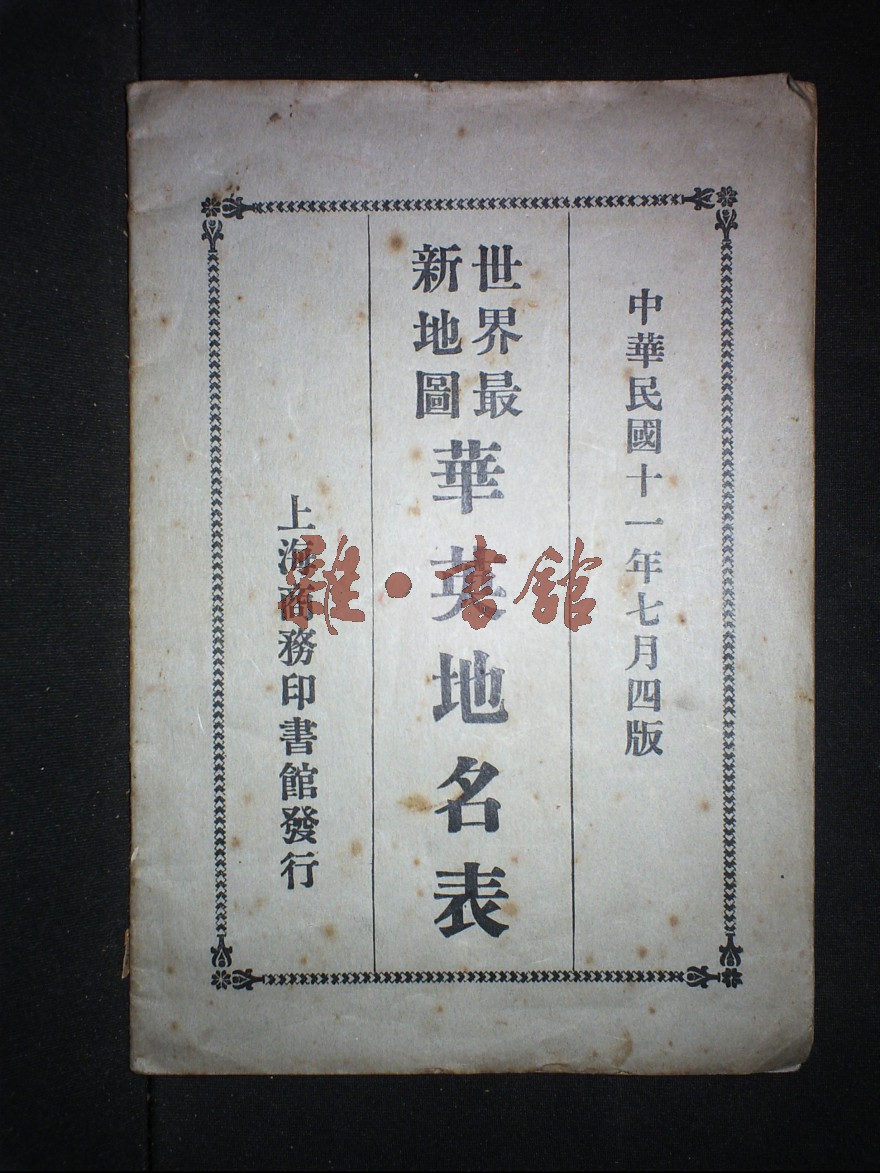 中華民國十一年七月四版
世界最
新地圖
華英地名表
上海商務印書館發行
雜·書館